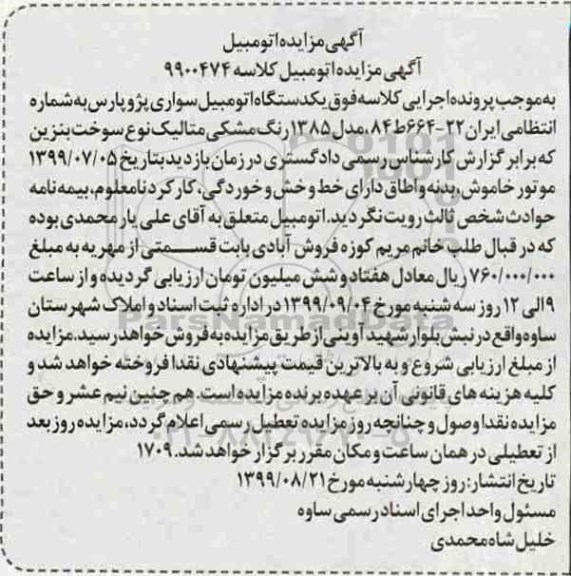 آگهی مزایده اتومبیل
آگهی مزایده اتومبیل کلاسه ۹۹۰۰۴۷۴
به موجب پرونده اجرایی کلاسه فوق یکدستگاه اتومبیل سواری پژو پارس به شماره
انتظامی ایران ۲۲-۶۶۴ط۸۴، مدل ۱۳۸۵ رنگ مشکی متالیک نوع سوخت بنزین
که برابر گزارش کارشناس رسمی دادگستری در زمان بازدید بتاریخ ۱۳۹۹/۰۷/۰۵
موتور خاموش، بدنه و اطاق دارای خط و خش و خوردگی، کارکرد نامعلوم، بیمه نامه
حوادث شخص ثالث رویت نگردید. اتومبیل متعلق به آقای علی یار محمدی بوده
که در قبال طلب خانم مریم کوزه فروش آبادی بابت قسمتی از مهریه به مبلغ
۷۶۰/۰۰۰/۰۰۰ ریال معادل هفتاد و شش میلیون تومان ارزیابی گردیده و از ساعت
۹ الی ۱۲ روز سه شنبه مورخ ۱۳۹۹/۰۹/۰۴ در اداره ثبت اسناد و املاک شهرستان
ساوه واقع در نبش بلوار شهید آوینی از طریق مزایده به فروش خواهد رسید. مزایده
از مبلغ ارزیابی شروع و به بالاترین قیمت پیشنهادی نقدا فروخته خواهد شد و
کلیه هزینه های قانونی آن بر عهده برنده مزایده است. هم چنین نیم عشر و حق
مزایده نقدا وصول و چنانچه روز مزایده تعطیل رسمی اعلام گردد، مزایده روز بعد
از تعطیلی در همان ساعت و مکان مقرر برگزار خواهد شد. ۱۷۰۹
تاریخ انتشار: روز چهارشنبه مورخ ۱۳۹۹/۰۸/۲۱
مسئول واحد اجرای اسناد رسمی ساوه
خلیل شاه محمدی
ParsNamadData